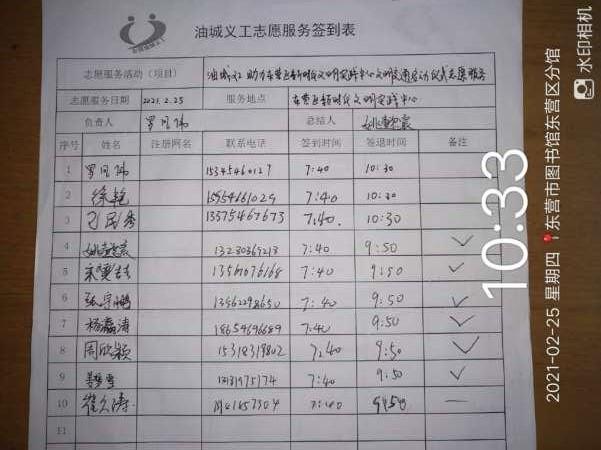 油城义工志愿服务签到表
志愿服务活动（项目） 油城义工助力东营区新时代文明实践中心文明交通启动仪式志愿服务
志愿服务日期 2021.2.25 服务地点 东营区新时代文明实践中心
负责人 总结人
序号 姓名 注册网名 联系电话 签到时间 签退时间 备注
1 15345460127 7:40 10:30
2 徐艳 15954661029 7:40 10:30
3 13375467673 7:40 10:30
4 13280369218 7:40 9:50 ✓
5 13561076168 7:40 9:50 ✓
6 13462298650 7:40 9:50 ✓
7 杨 涛 18654696689 7:40 9:50 ✓
8 周欣颖 15318319802 7:40 9:50 ✓
9 13131975174 7:40 9:50 ✓
10 崔久涛 7:40 —
11
水印相机
10:33
2021-02-25 星期四 东营市图书馆东营区分馆